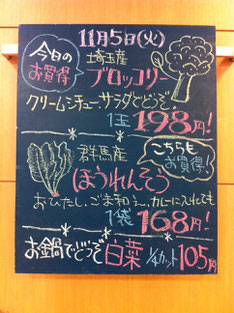 11月5日(火)
今日の
お買得
埼玉産
ブロッコリー
クリームシチュー、サラダでどうぞ!
1玉 198円!
群馬産
こちらも
お買得!
ほうれんそう
おひたし、ごま和え、カレーに入れても
1袋 168円!
お鍋でどうぞ 白菜 1/4カット 105円